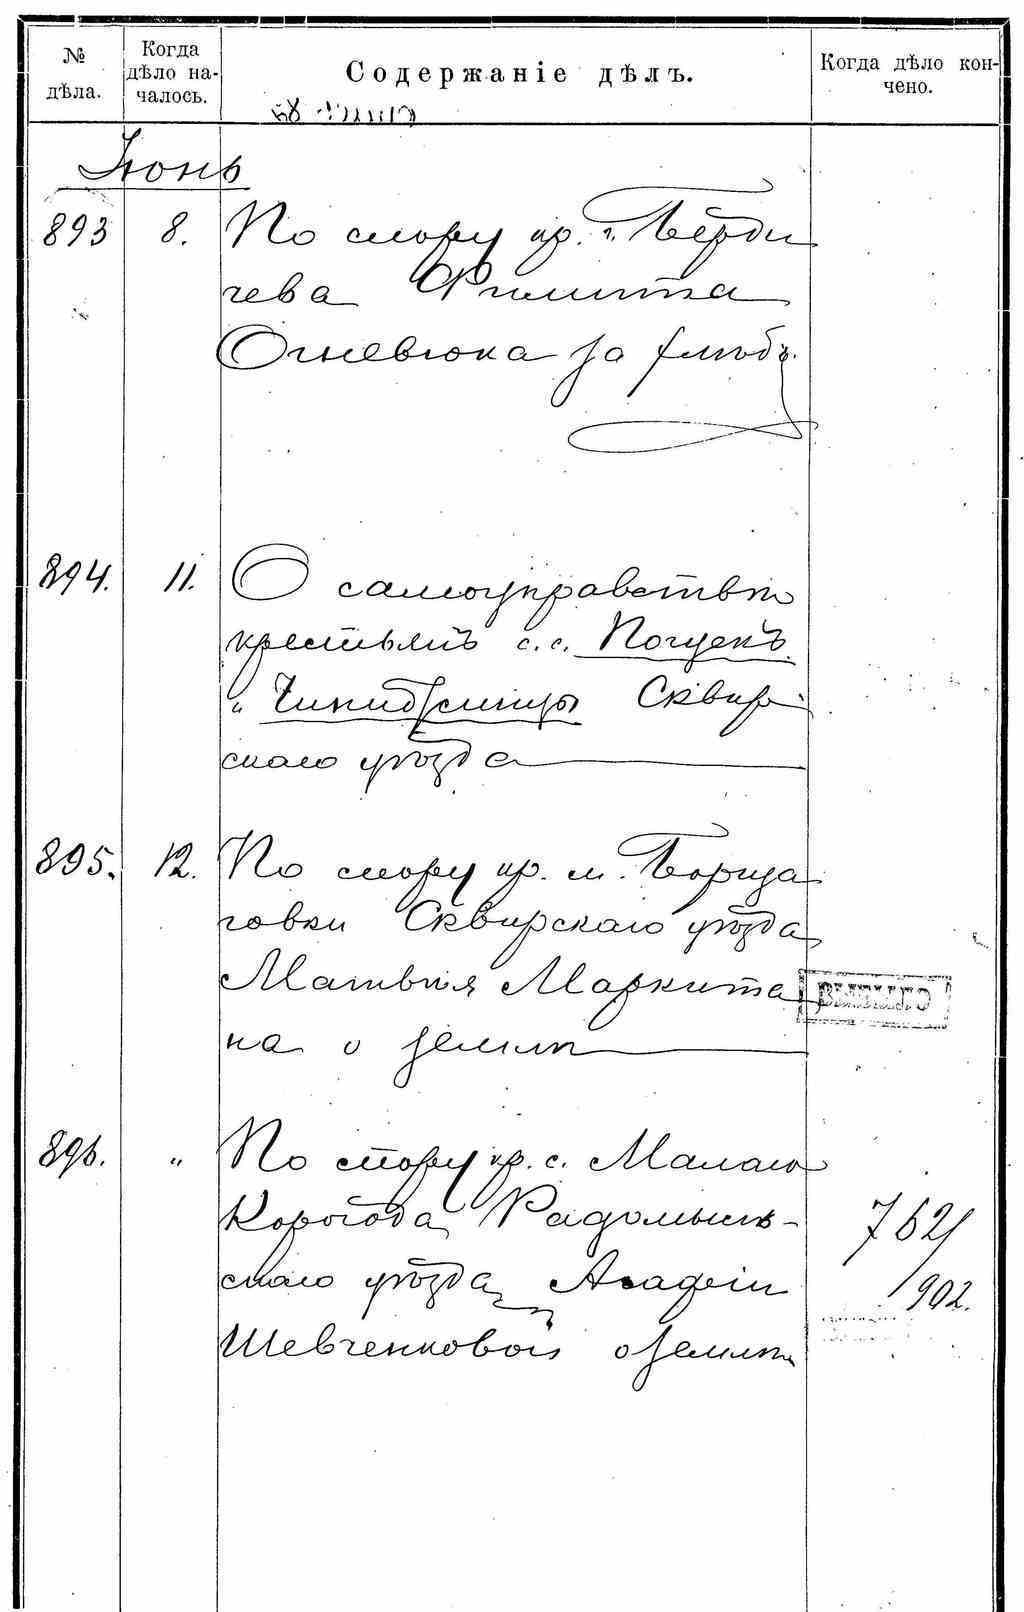 № дѣла.
Когда дѣло началось.
Содержаніе дѣлъ.
Когда дѣло кончено.
Іюнь
893 8. По спору кр. г. Берди
чева Филиппа
Огневюка за
894. 11. О самоуправствѣ
крестьянъ с.с. Погребъ
" Сквир
скаго уѣзда
895. 12. По спору кр. м. Борща
говки Сквирскаго уѣзда
Матвѣя Маркита
на о землѣ
ВЫБЫЛО
896. " По спору кр. с. Малаго
Корогода Радомысль-
скаго уѣзда Агафіи
Шевченковой о землѣ
762/
902.